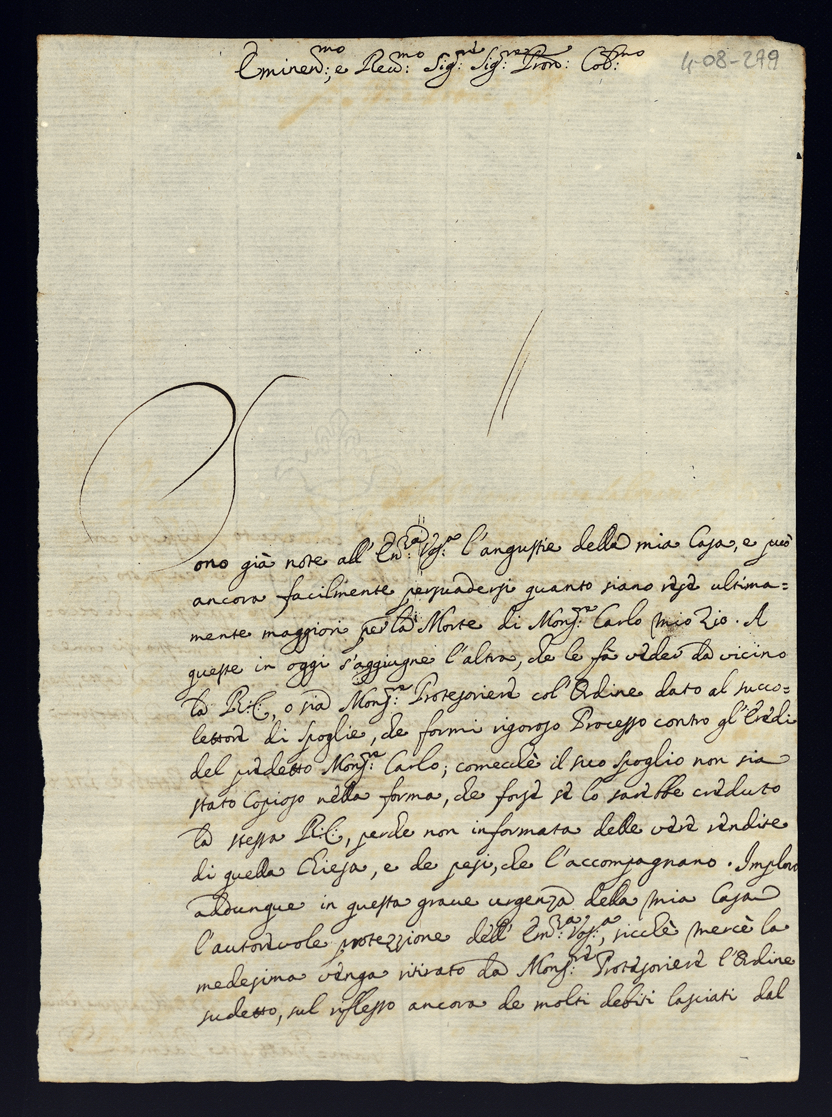 Eminen:mo, e Reu:mo Sig:re Sig:re Pron: Col:mo
4-08-279
Sono già note all'Em:za Vos:a l'angustie della mia Casa, e può
ancora facilmente persuadersi quanto siano rese ultima=
mente maggiori per la Morte di Mons:re Carlo mio Zio. A
queste in oggi s'aggiugne l'altra, che le fà veder da vicino
la R:C:, o sia Mons:re Protesoriere col'Ordine dato al succo=
lettore di spoglie, che formi rigoroso Processo contro gl'Eredi
del predetto Mons:re Carlo; comecchè il suo spoglio non sia
stato Copioso nella forma, che forse se lo sarebbe creduto
la stessa R:C:, perche non informata delle vere rendite
di quella Chiesa, e de pesi, che l'accompagnano. Imploro
addunque in questa graue urgenza della mia Casa
l'autoreuole protezzione dell'Em:za Vos:a, sicchè mercè la
medesima venga ritirato da Mons:re Protesoriere l'Ordine
sudetto, sul riflesso ancora de molti debiti lasciati dal